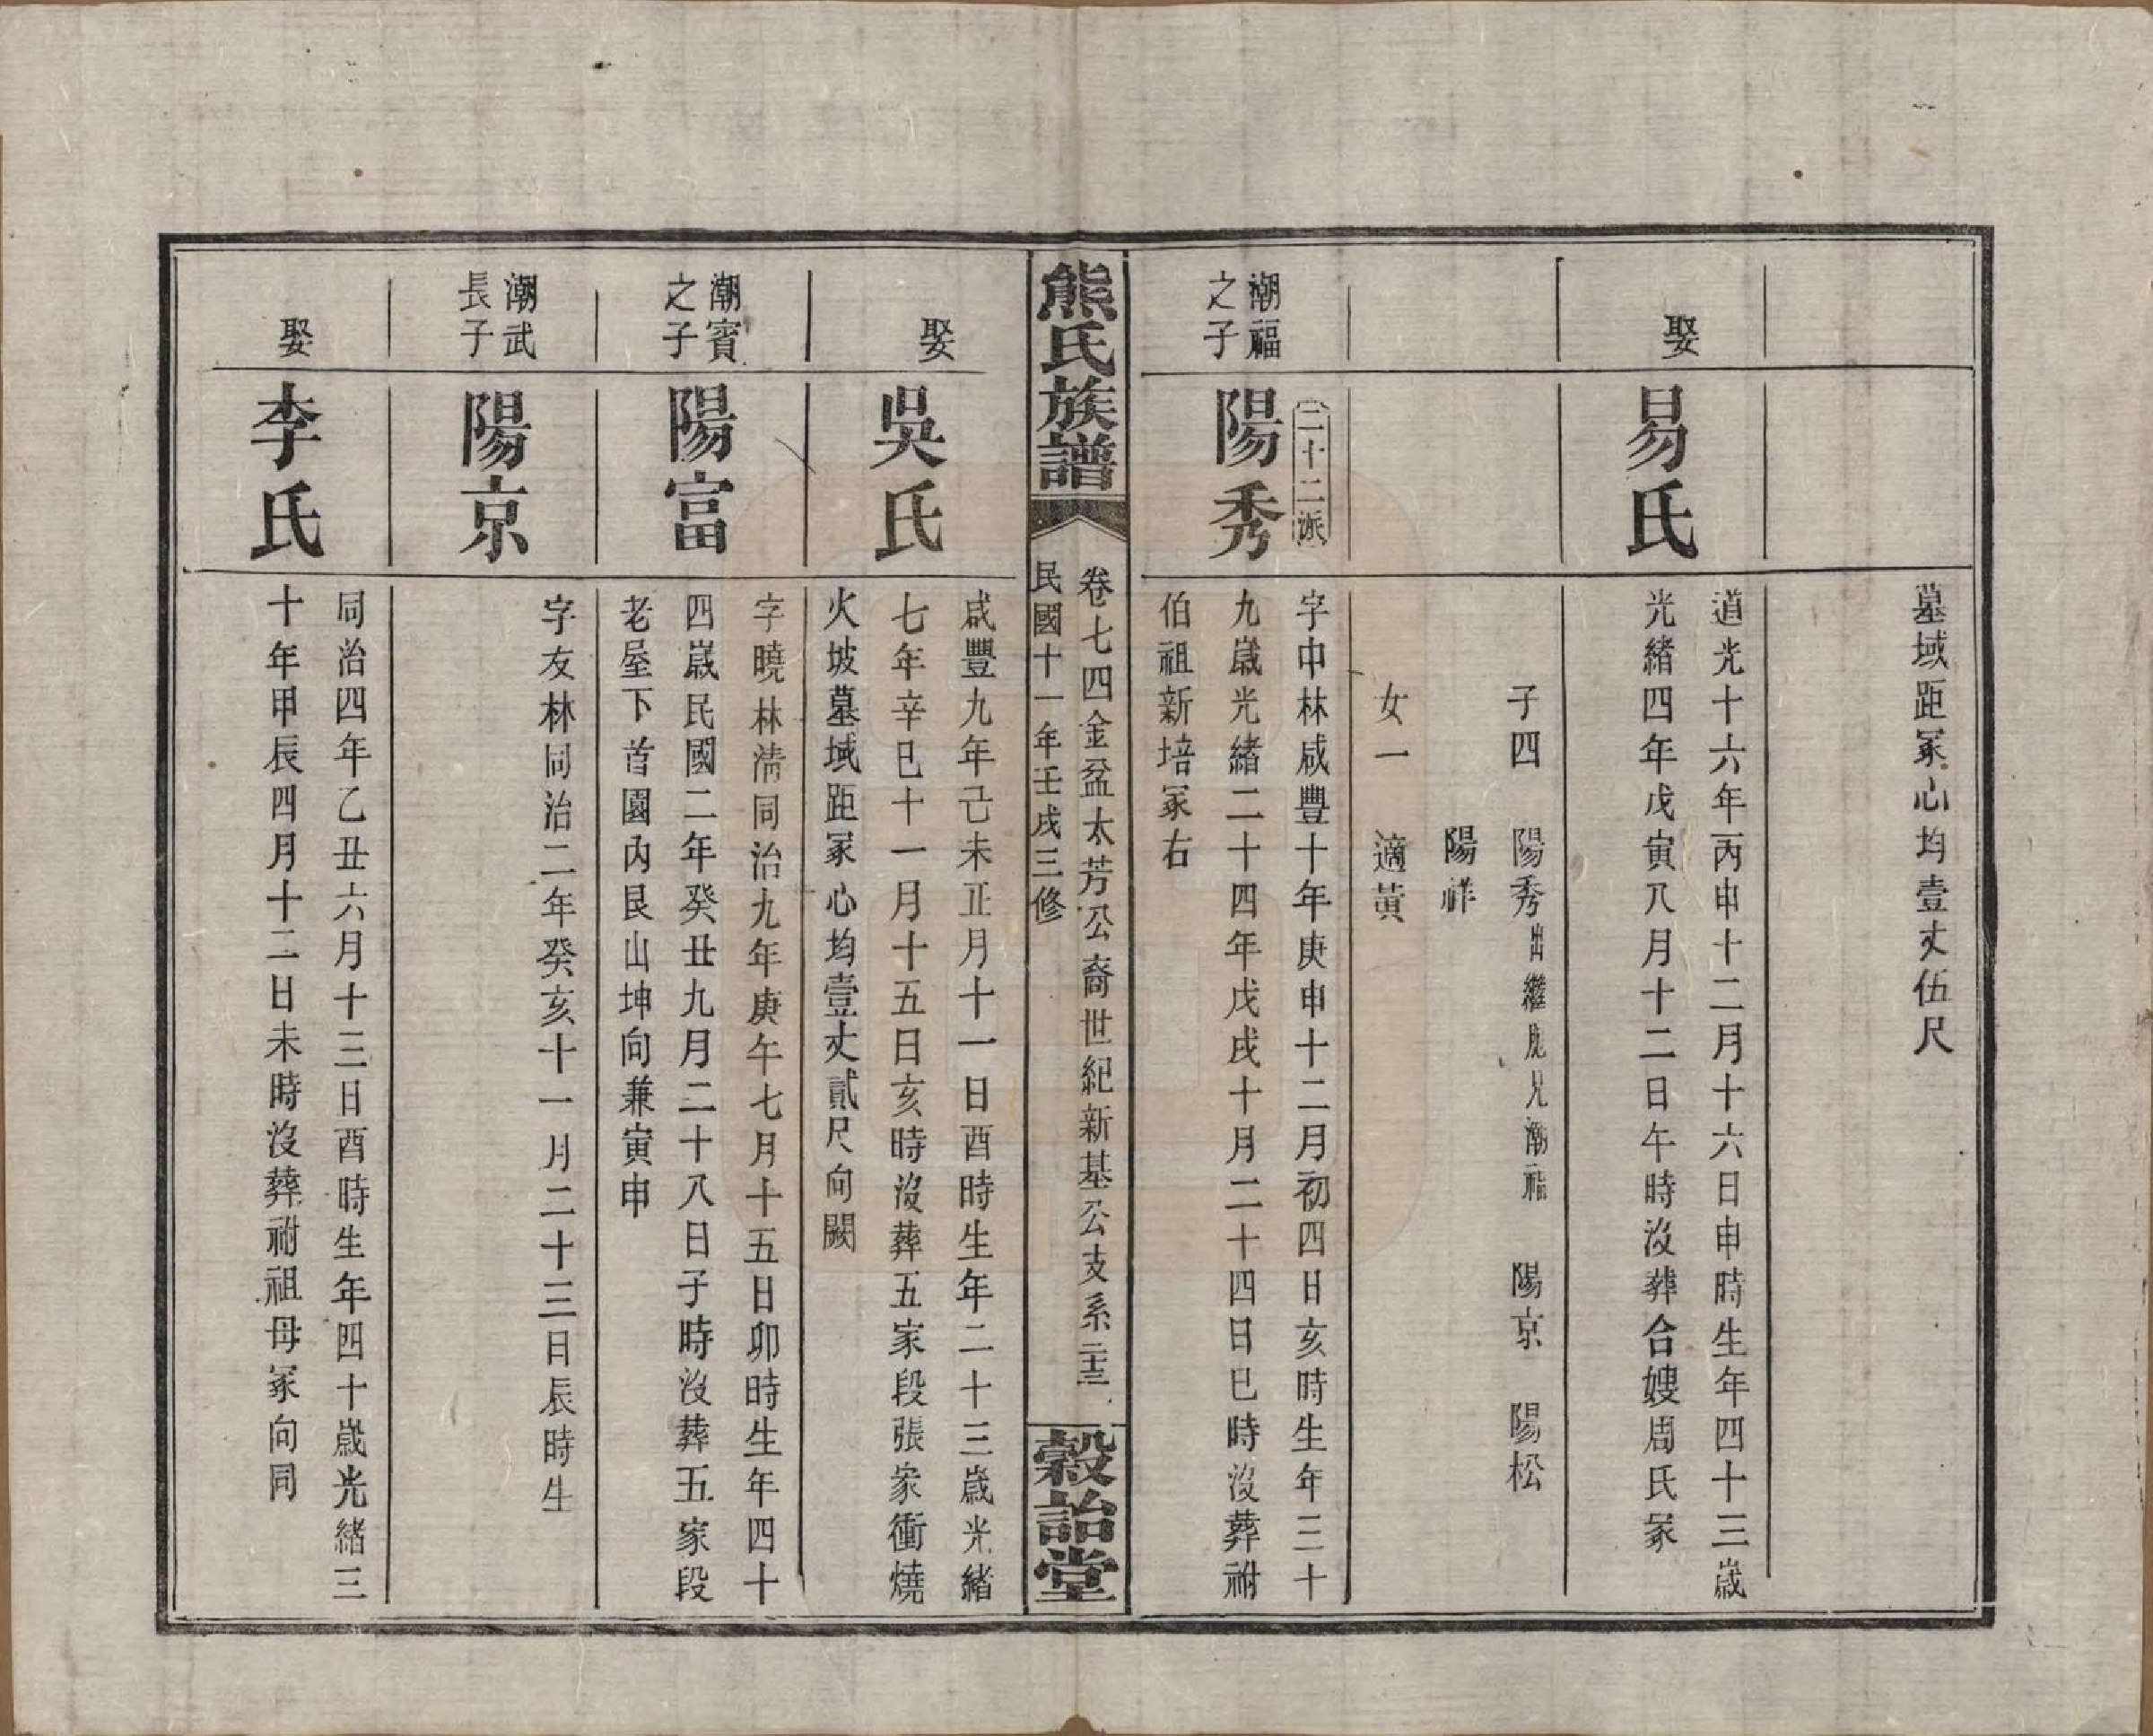 墓域距冢心均壹丈伍尺
娶
易氏
道光十六年丙申十二月十六日申時生年四十三歲
光緒四年戊寅八月十二日午時沒葬合嫂周氏冢
子四　陽秀出繼胞兄潮福　陽京　陽松
陽祥
女一　適黃
潮福
之子
二十二派
陽秀
字中林咸豐十年庚申十二月初四日亥時生年三十
九歲光緒二十四年戊戌十月二十四日巳時沒葬祔
伯祖新培冢右
熊氏族譜
卷七四金盆太芳公裔世紀新基公支系二十三
民國十一年壬戌三修
穀詒堂
娶
吳氏
咸豐九年己未正月十一日酉時生年二十三歲光緒
七年辛巳十一月十五日亥時沒葬五家段張家衝燒
火坡墓域距冢心均壹丈貳尺向闕
潮賓
之子
陽富
字曉林清同治九年庚午七月十五日卯時生年四十
四歲民國二年癸丑九月二十八日子時沒葬五家段
老屋下首園內艮山坤向兼寅申
潮武
長子
陽京
字友林同治二年癸亥十一月二十三日辰時生
娶
李氏
同治四年乙丑六月十三日酉時生年四十歲光緒三
十年甲辰四月十二日未時沒葬祔祖母冢向同